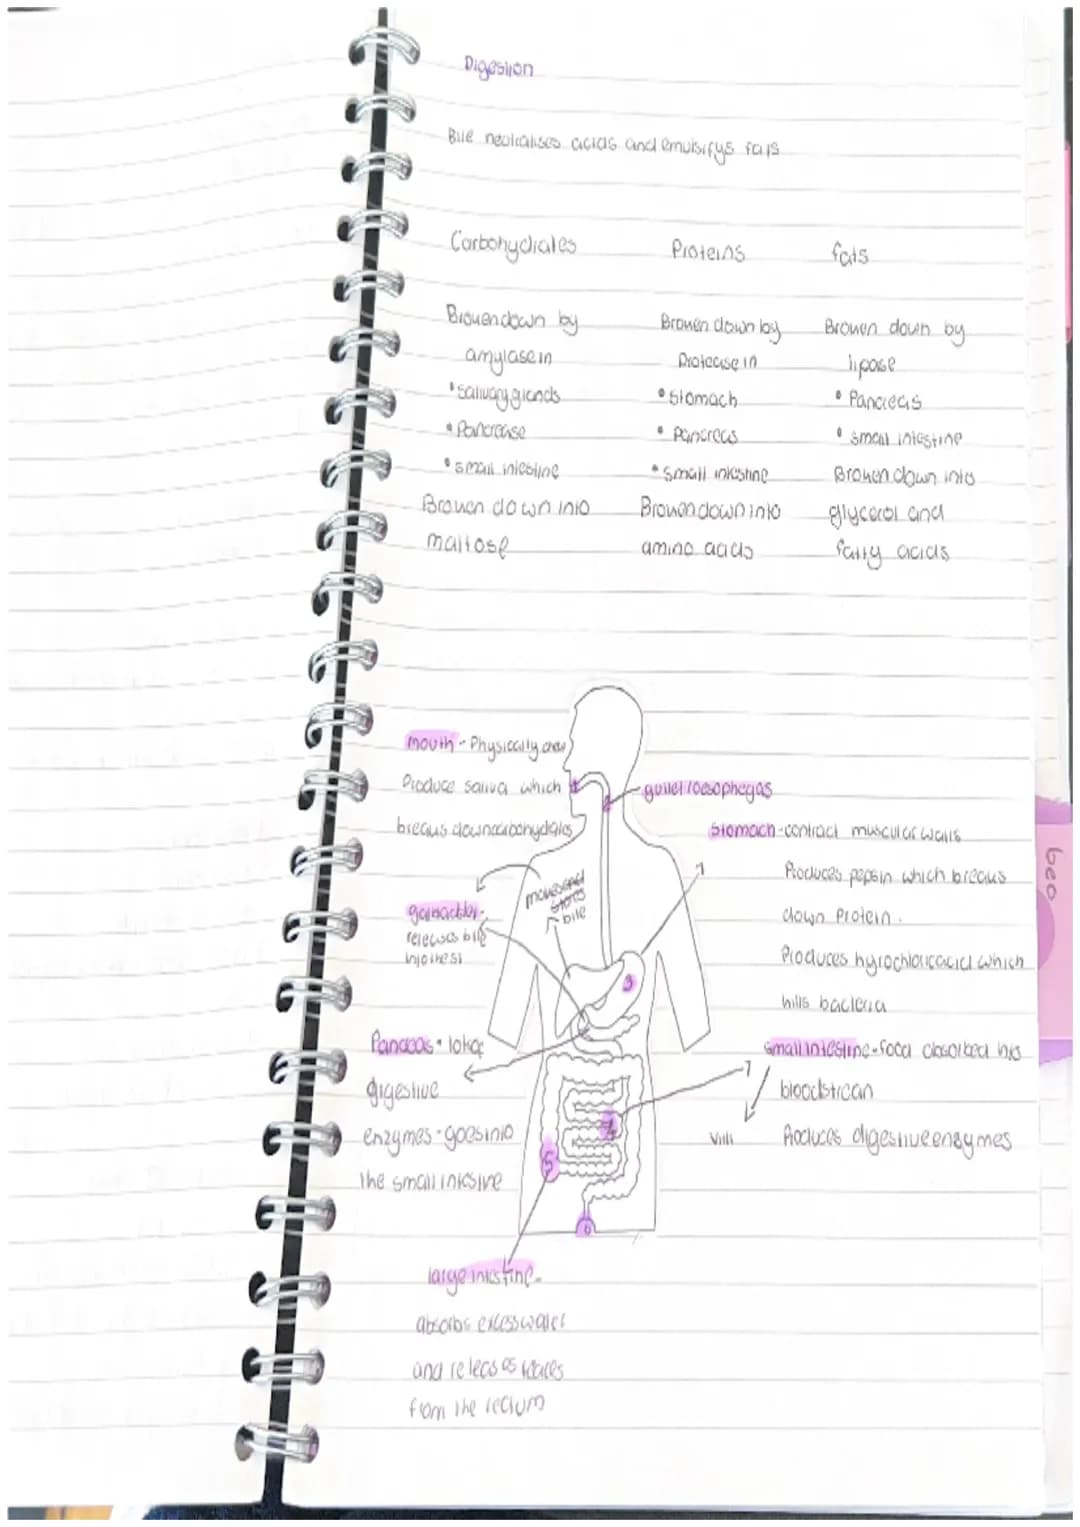 Digestion
Bile neutralises acids and emulsifys fats
Carbohydrates Proteins fats
Broken down by Broken down by Broken down by
amylase in Protease in lipase
• salivary glands • Stomach • Pancreas
• Pancrease • Pancreas • small intestine
• small intestine • Small intestine Broken down into
Broken down into Broken down into glycerol and
maltose amino acids fatty acids
mouth - Physically chew
Produce saliva which
breaks down carbohydrates
gullet/oesophegas
Stomach - contract muscular walls
Produces pepsin which breaks
down Protein.
Produces hyrochloric acid which
kills bacteria
makes and
stores
bile
galbladder -
releases bile
into
Pancreas •
digestive
enzymes - goes into
the small intestine
small intestine - food absorbed into
bloodstream
Villi Produces digestive enzymes
3
4
5
6
large intestine -
absorbs excess water
and releases faeces
from the rectum
geo